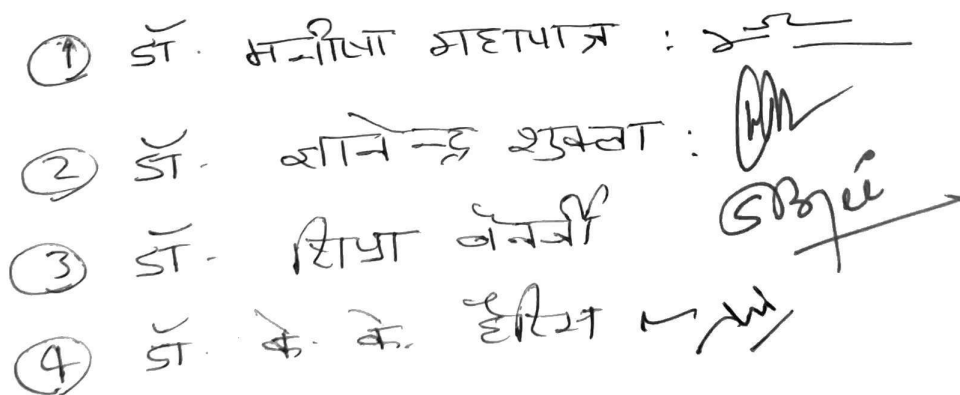 ① डॉ. मनीषा महापात्र :
② डॉ. ज्ञानेन्द्र शुक्ला :
③ डॉ. शिप्रा बॅनर्जी
④ डॉ. के. के. हैरिस